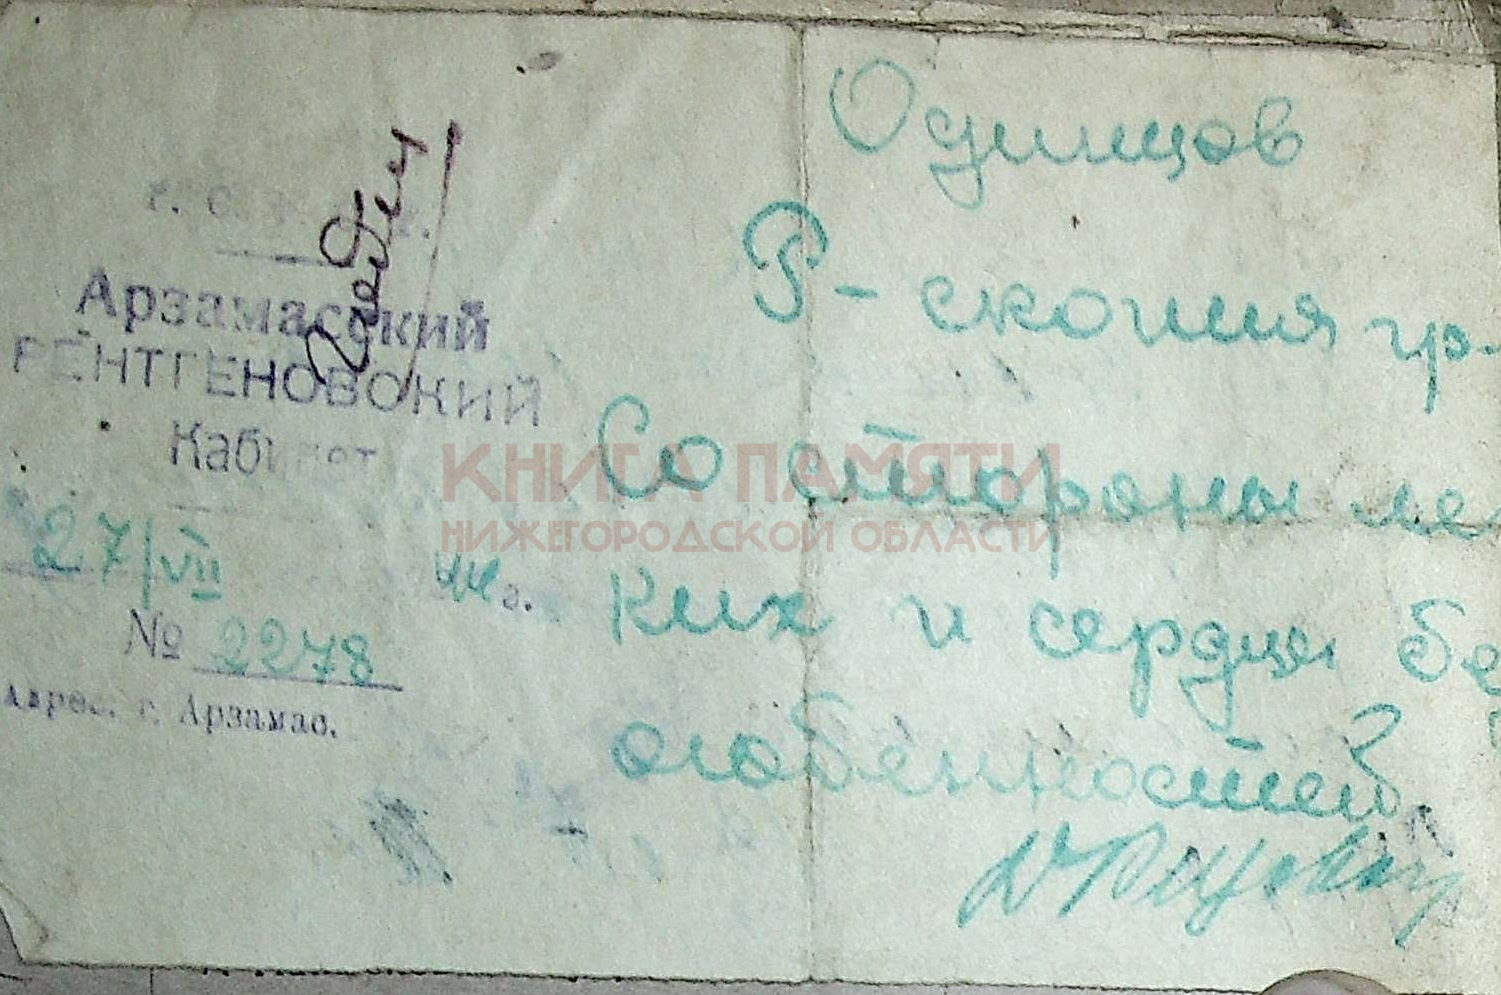 Арзамасский
РЕНТГЕНОВСКИЙ
Кабинет
27/VII 44 г.
№ 2278
Адрес: г. Арзамас.
Одинцов
Р-скопия гр.
Со стороны лег
ких и сердца без
особенностей
КНИГА ПАМЯТИ
НИЖЕГОРОДСКОЙ ОБЛАСТИ